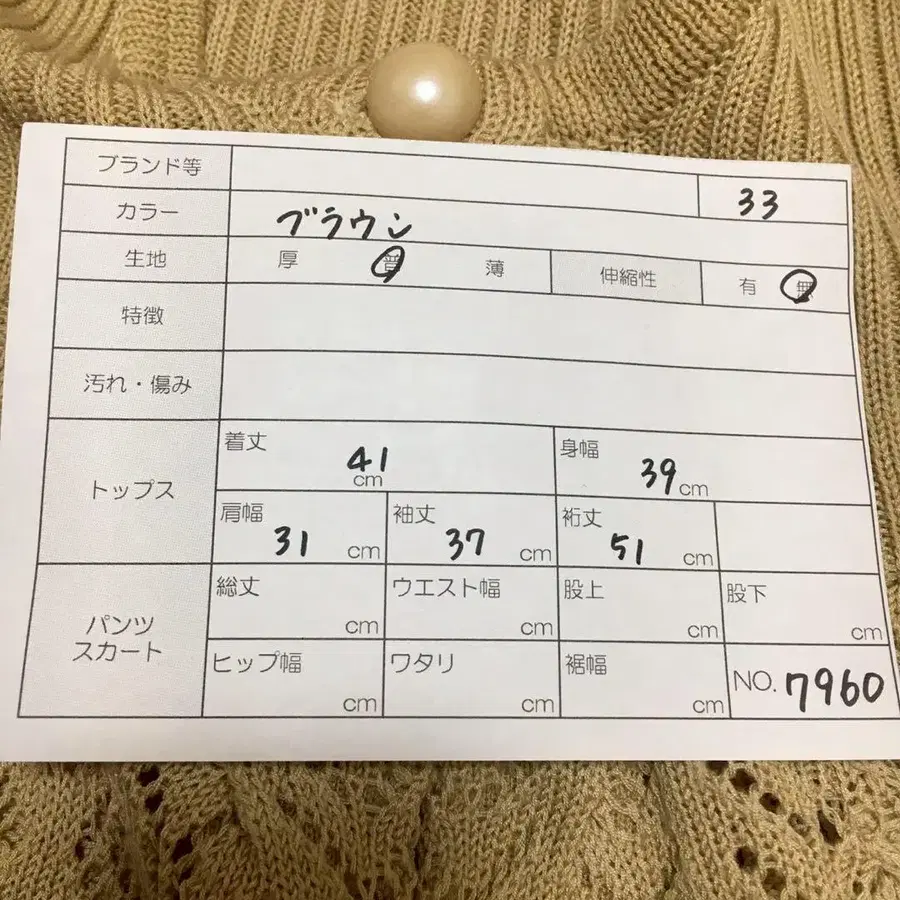 ブランド等 33
カラー ブラウン
生地 厚 普 薄 伸縮性 有 無
特徴
汚れ・傷み
トップス
着丈 41 cm 身幅 39 cm
肩幅 31 cm 袖丈 37 cm 裄丈 51 cm
パンツ
スカート
総丈 cm ウエスト幅 cm 股上 cm 股下 cm
ヒップ幅 cm ワタリ cm 裾幅 cm NO. 7960